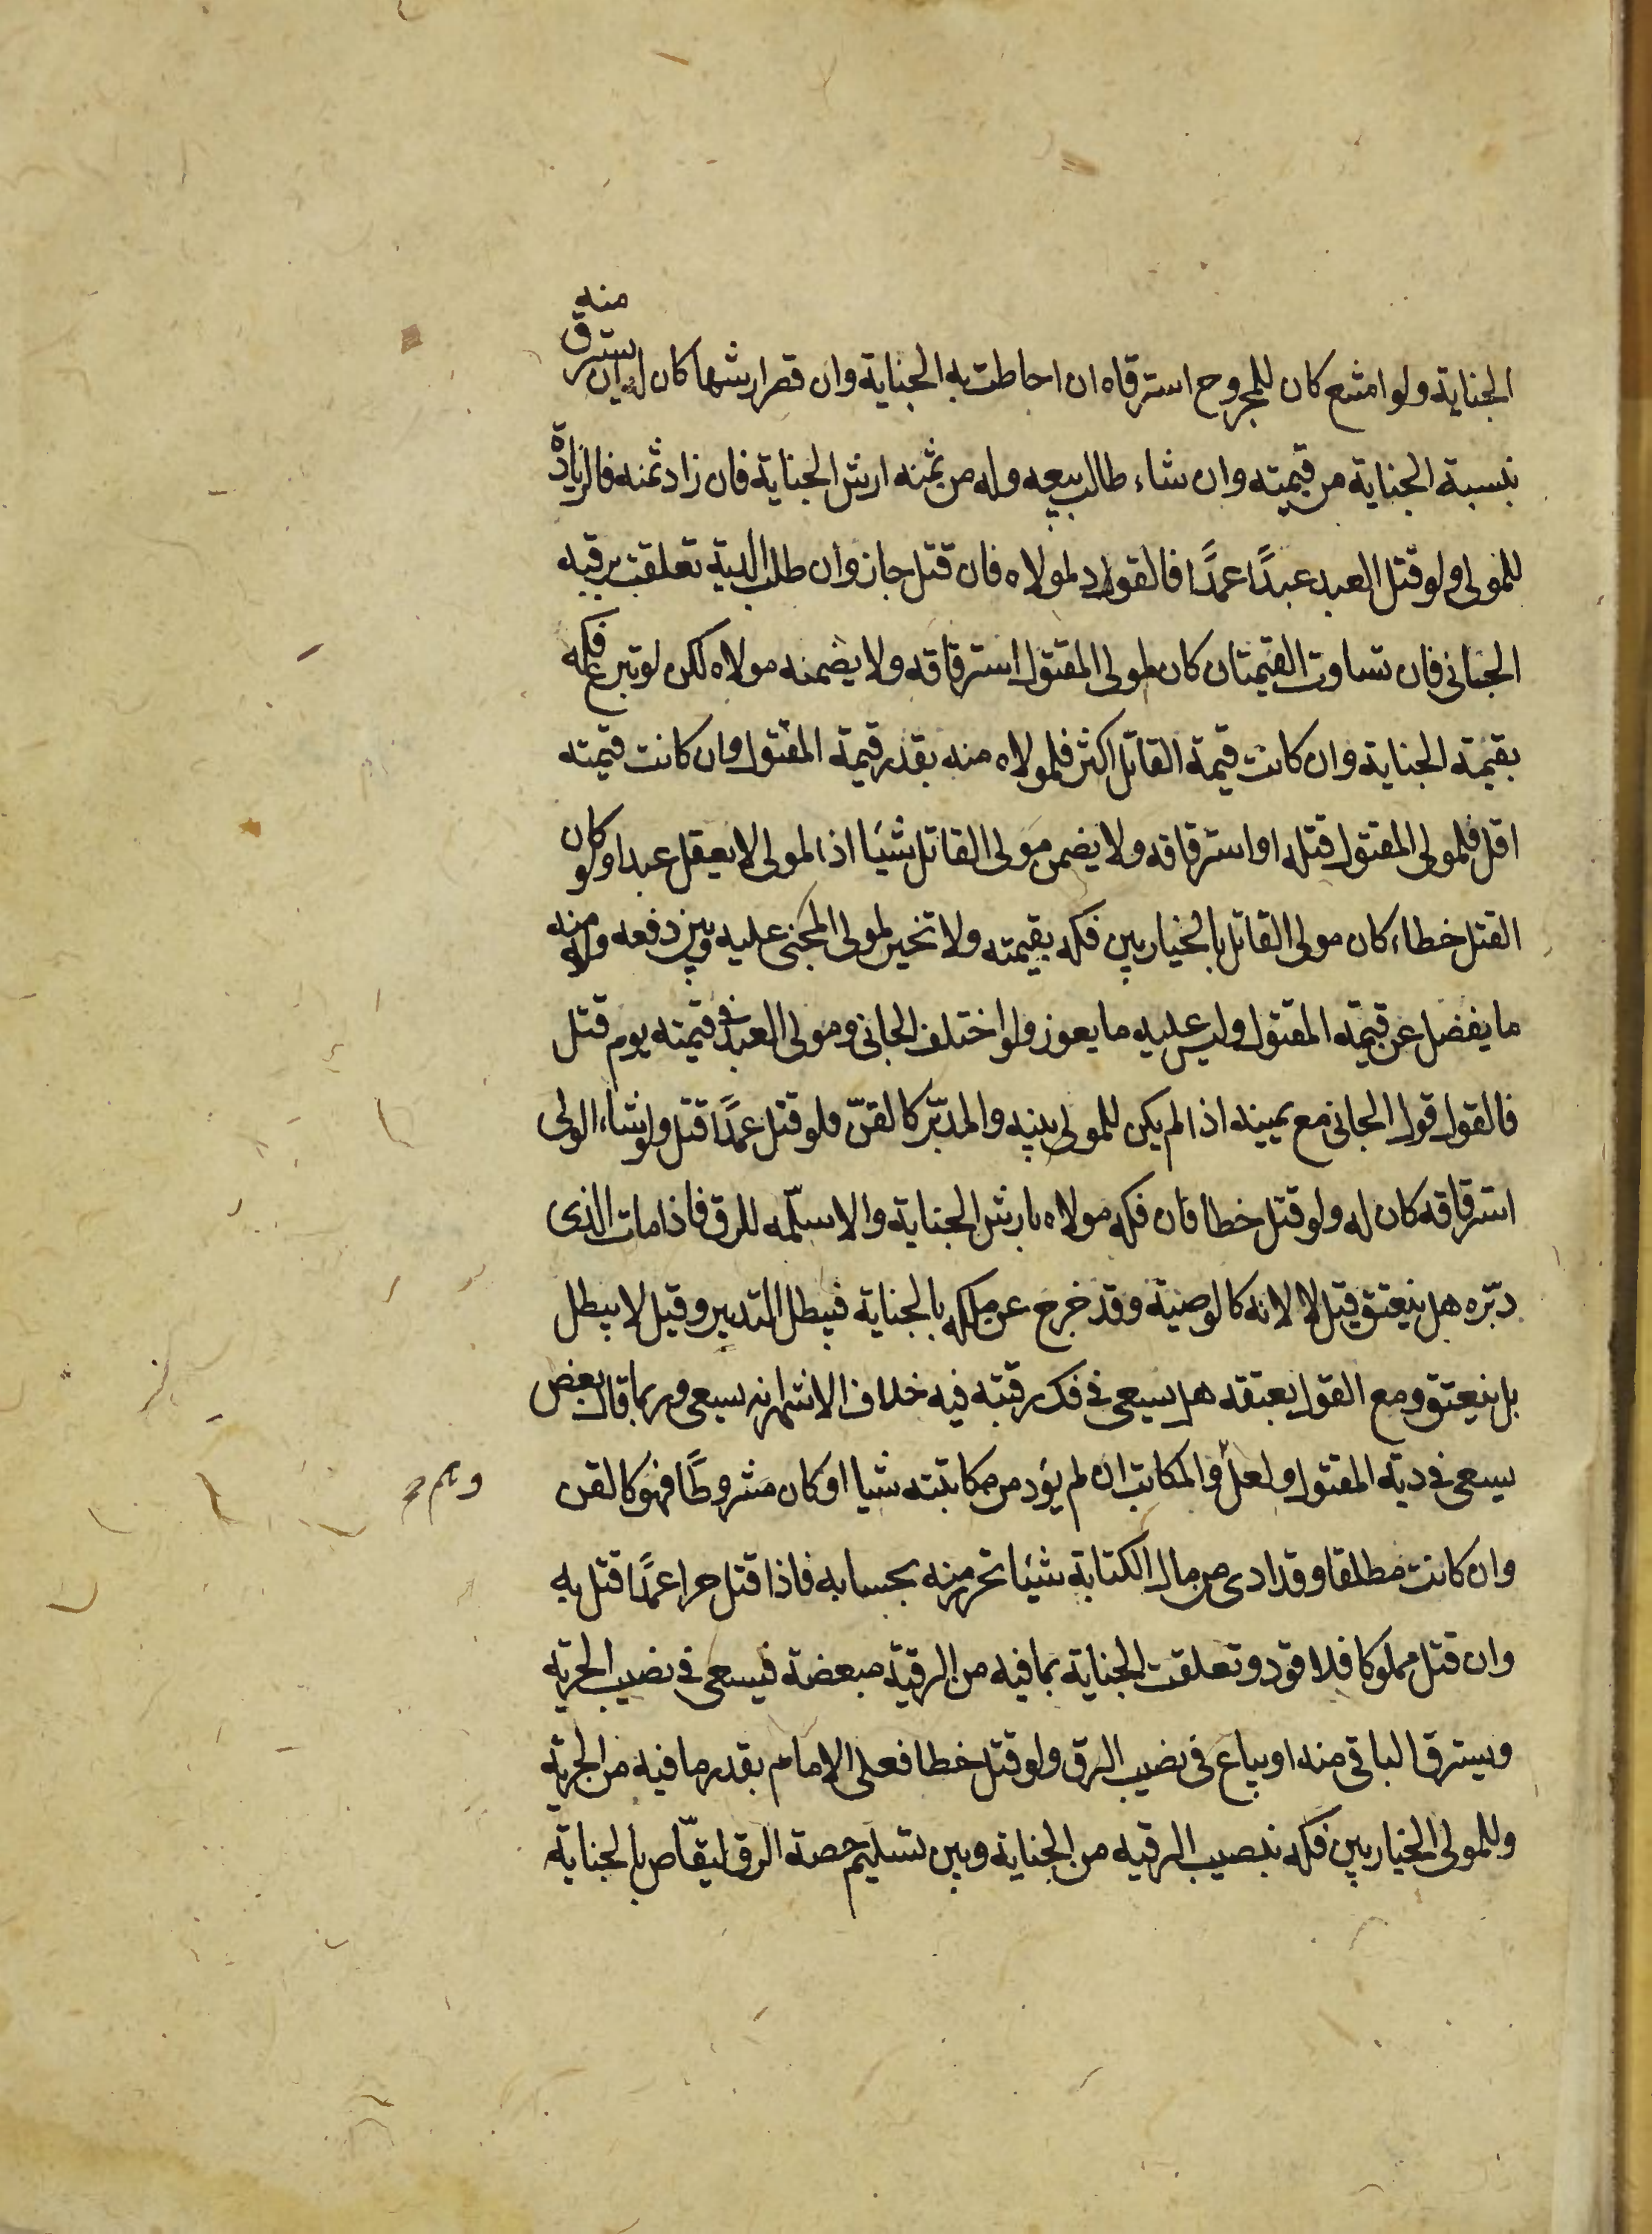 الجناية ولو امتنع كان للمجروح استرقاه ان احاطت به الجناية وان قصر ارشها كان له ان يسترق منه
بنسبة الجناية من قيمته وان شاء طالب ببيعه وله من ثمنه ارش الجناية فان زاد ثمنه فالزيادة
للمولى ولو قتل العبد عبدًا عمدًا فالقود لمولاه فان قتل جاز وان طلب الدية تعلقت برقبه
الجنانى فان تساوت القيمتان كان لمولى المقتول استرقاقه ولا يضمنه مولاه لكن لو تبرع فكه
بقيمة الجناية وان كانت قيمة القاتل اكثر فلمولاه منه بقدر قيمة المقتول وان كانت قيمته
اقل فلمولى المقتول قتله او استرقاقه ولا يضمن مولى القاتل شيئا اذ المولى لا يعقل عبدا ولو كان
القتل خطاء كان مولى القاتل بالخيار بين فكه بقيمته ولا تخير لمولى المجنى عليه وبين دفعه وله منه
ما يفضل عن قيمة المقتول وليس عليه ما يعوز ولو اختلف الجانى ومولى العبد فى قيمته يوم قتل
فالقول قول الجانى مع يمينه اذا لم يكن للمولى بينه والمدبّر كالقنّ فلو قتل عمدًا قتل ولو شاء الولى
استرقاقه كان له ولو قتل خطا فان فكه مولاه بارش الجناية والا سلّمه للرق فاذا مات الذى
دبّره هل ينعتق قيل لا لانه كالوصية وقد خرج عن ملكه بالجناية فيبطل التدبير وقيل لا يبطل
بل ينعتق ومع القول بعتقه هل يسعى فى فك رقبته فيه خلاف الاشهر انه يسعى وربما قال بعض
يسعى فى دية المقتول ولعلّ والمكاتب ان لم يؤد من مكاتبته شيا او كان مشروطًا فهو كالقن
وهم
وان كانت مطلقا وقد ادى من مال الكتابة شيئا تحرر منه بحسابه فاذا قتل حرا عمدًا قتل به
وان قتل مملوكا فلا قود وتعلقت الجناية بما فيه من الرقية مبعضة فيسعى فى نصيب الحرية
ويسترق الباقى منه او يباع فى نصيب الرق ولو قتل خطا فعلى الامام بقدر ما فيه من الحرية
وللمولى الخيار بين فكه بنصيب الرقيه من الجناية وبين تسليم حصة الرق ليقاّص بالجناية